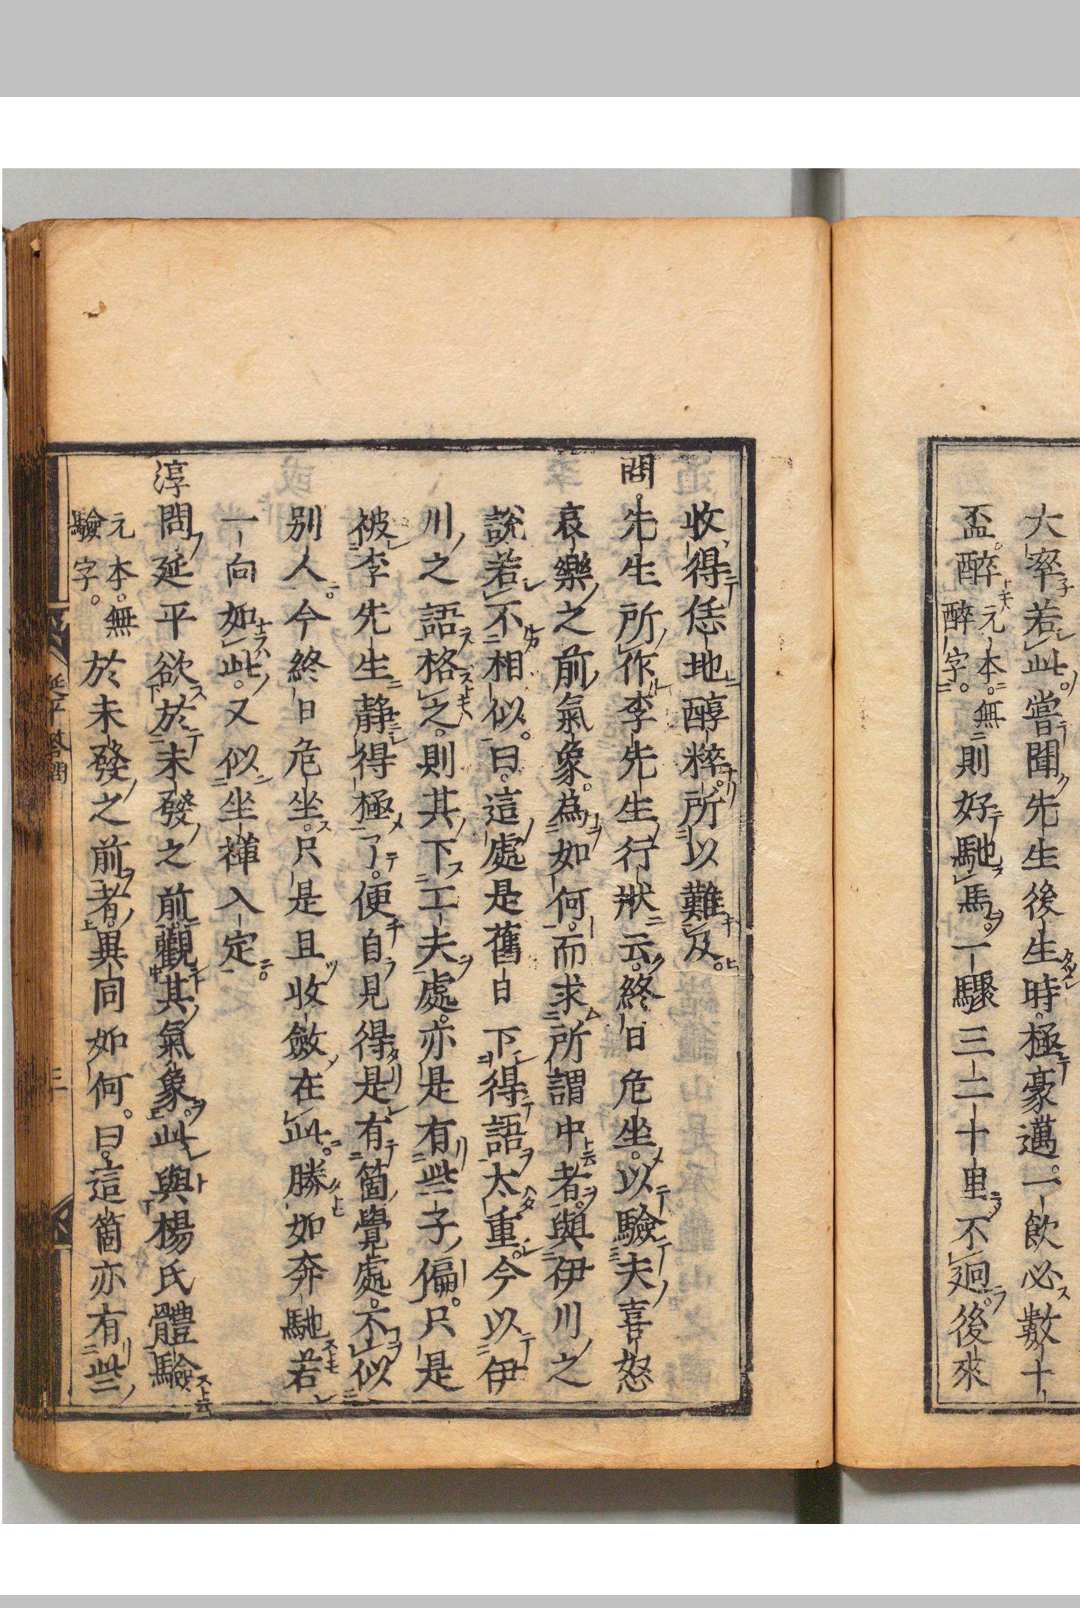 大率若此嘗聞先生後生時極豪邁一飲必數十
盃醉元本無醉字則好馳馬一驟三二十里不廻後來
收得恁地醇粹所以難及
問先生所作李先生行狀云終日危坐以驗夫喜怒
哀樂之前氣象為如何而求所謂中者與伊川之
說若不相似曰這處是舊日下得語太重今以伊
川之語格之則其下工夫處亦是有些子偏只是
被李先生静得極了便自見得是有箇覺處不似
別人今終日危坐只是且收斂在此勝如奔馳若
一向如此又似坐禪入定
淳問延平欲於未發之前觀其氣象此與楊氏體驗
元本無驗字於未發之前者異同如何曰這箇亦有些
延平答問
三